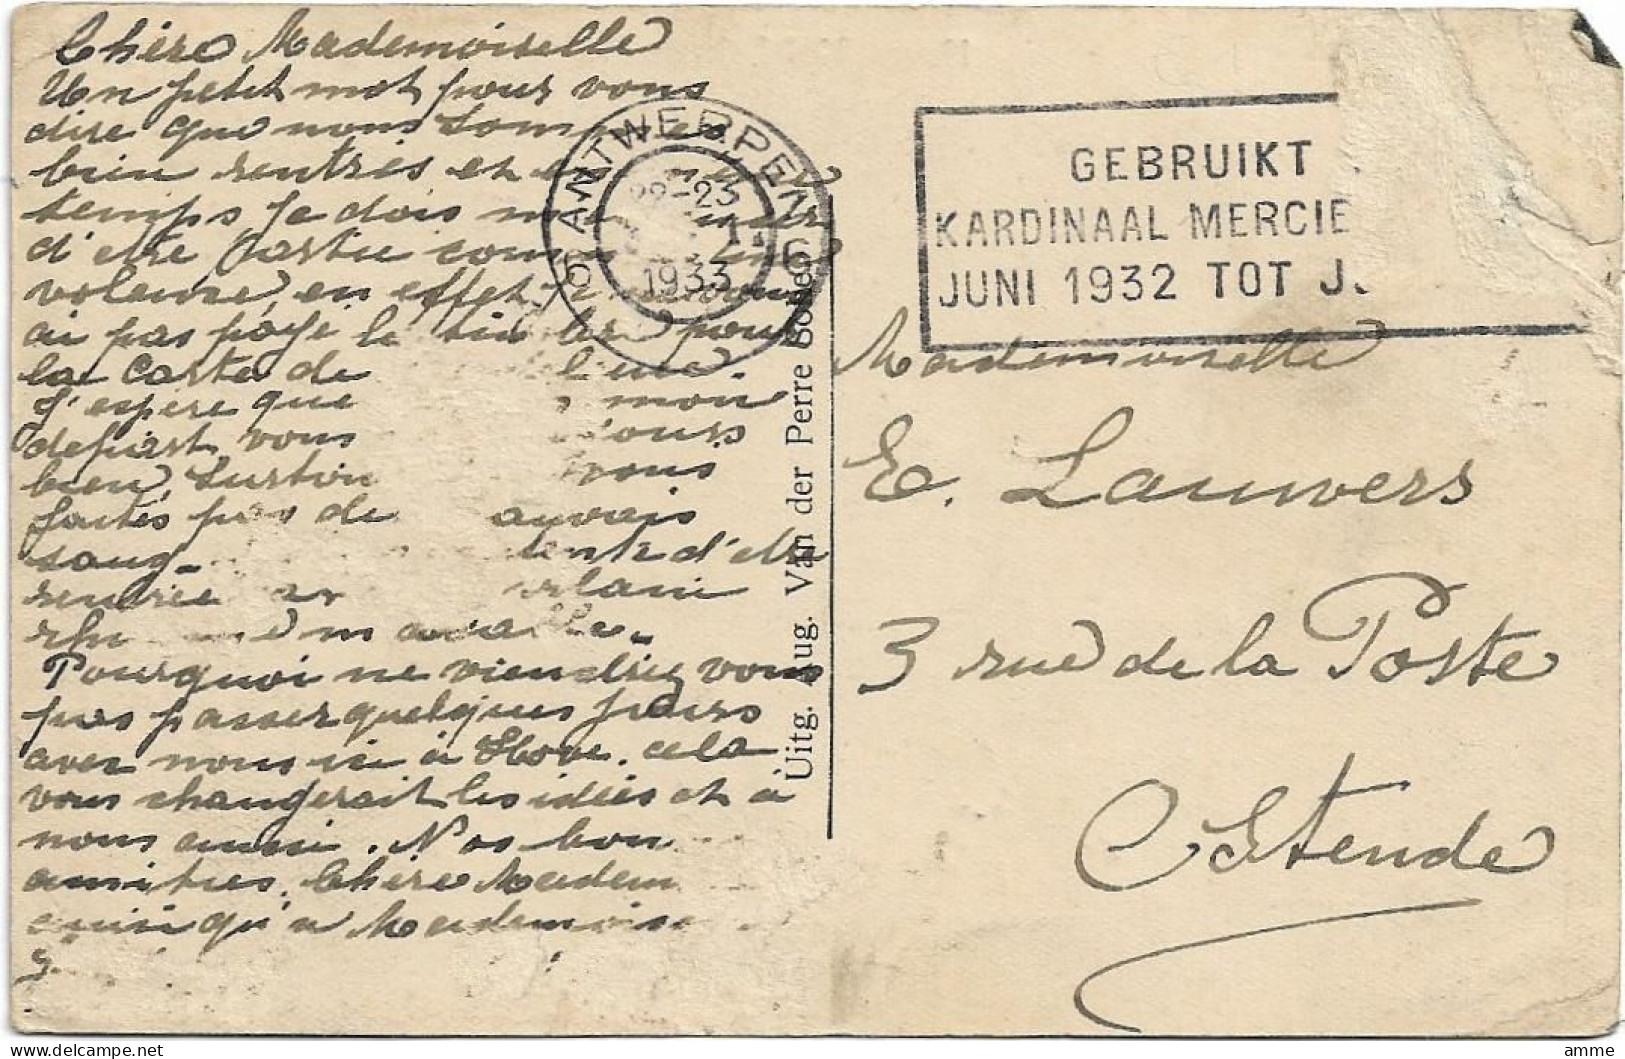 Chère Mademoiselle
Un petit mot pour vous
dire que nous sommes
bien rentrés et en
temps je dois
d'etre partie comme une
voleuse, en effet je
ai pas payé le timbre pour
la carte de
J'espère que mon
depart, vous jours
bien, surtou vous
faites pas de auvais
sang. d'etre
rentrée

Pourquoi ne viendriez vous
pas passer quelques jours
avec nous ici à Hove. cela
vous changerait les idées et à
nous aussi. Nos bon
amities, Chère Madem
ainsi qu'a Mademoise
ANTWERPEN
6 6
22-23
1933
GEBRUIKT
KARDINAAL MERCIE
JUNI 1932 TOT J
Uitg. Aug. Van der Perre Boe
Mademoiselle
E. Lauwers
3 rue de la Poste
Ostende
amme